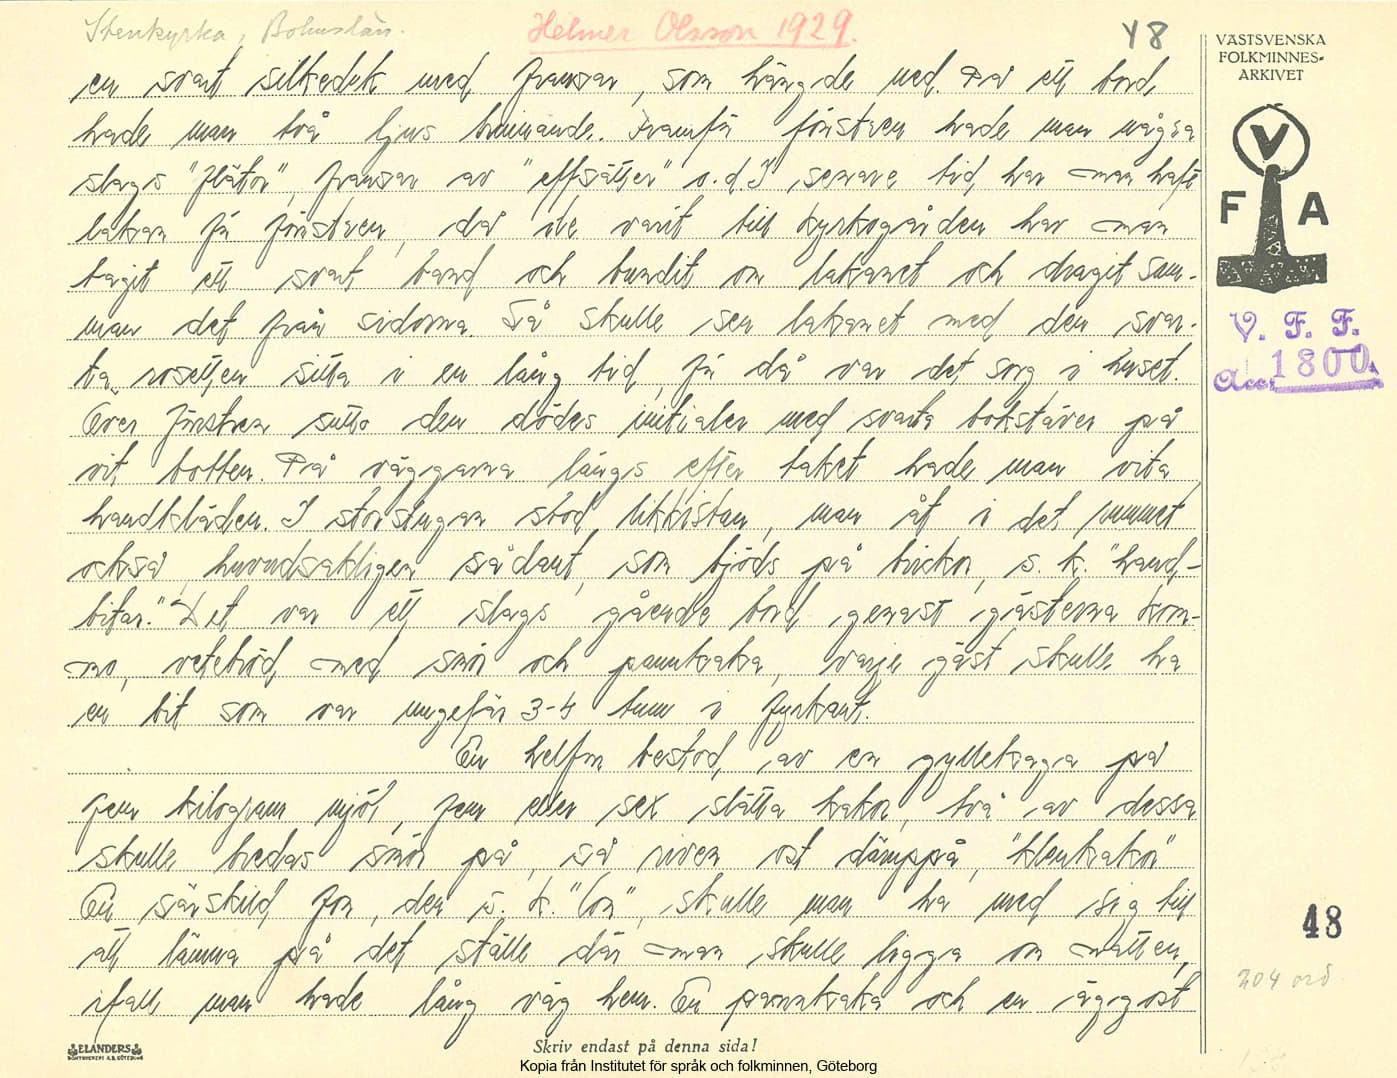 Stenkyrka, Bohuslän.
Helmer Olsson 1929.
Y8
VÄSTSVENSKA
FOLKMINNES-
ARKIVET
V
F A
V. F. F.
Acc. 1800
en svart silkeduk med fransar, som hängde ned. På ett bord
hade man två ljus brinnande. Framför fönstren hade man några
slags "flätor", fransar av "effsätter" o.d. I senare tid har man haft
lakan för fönstren, då de varit till kyrkogården har man
tagit ett svart band och bundit om lakanet och dragit sam-
man det från sidorna. Så skulle sen lakanet med den svar-
ta rosetten sitta i en lång tid, för då var det sorg i huset.
Över fönstren sutto den dödes initialer med svarta bokstäver på
vit botten. På väggarna längs efter taket hade man vita
handkläden. I storstugan stod likkistan, man åt i det rummet
också, huvudsakligen sådant, som bjöds på brickor, s.k. "hand-
bitar." Det var ett slags gående bord genast gästerna kom-
mo, vetebröd med smör och pannkaka, varje gäst skulle ha
en bit som var ungefär 3-4 tum i fyrkant.
En helforn bestod av en gyllekaga på
fem kilogram mjöl, fem eller sex slätta kakor, två av dessa
skulle bredas smör på, så riven ost därpå, "klenkakor"
En särskild forn, den s.k. "lorn", skulle man ha med sig till
att lämna på det ställe där man skulle ligga om natten,
ifall man hade lång väg hem. En pannkaka och en äggost
48
204 ord.
ELANDERS
BOKTRYCKERI A.B. GÖTEBORG
Skriv endast på denna sida!
Kopia från Institutet för språk och folkminnen, Göteborg